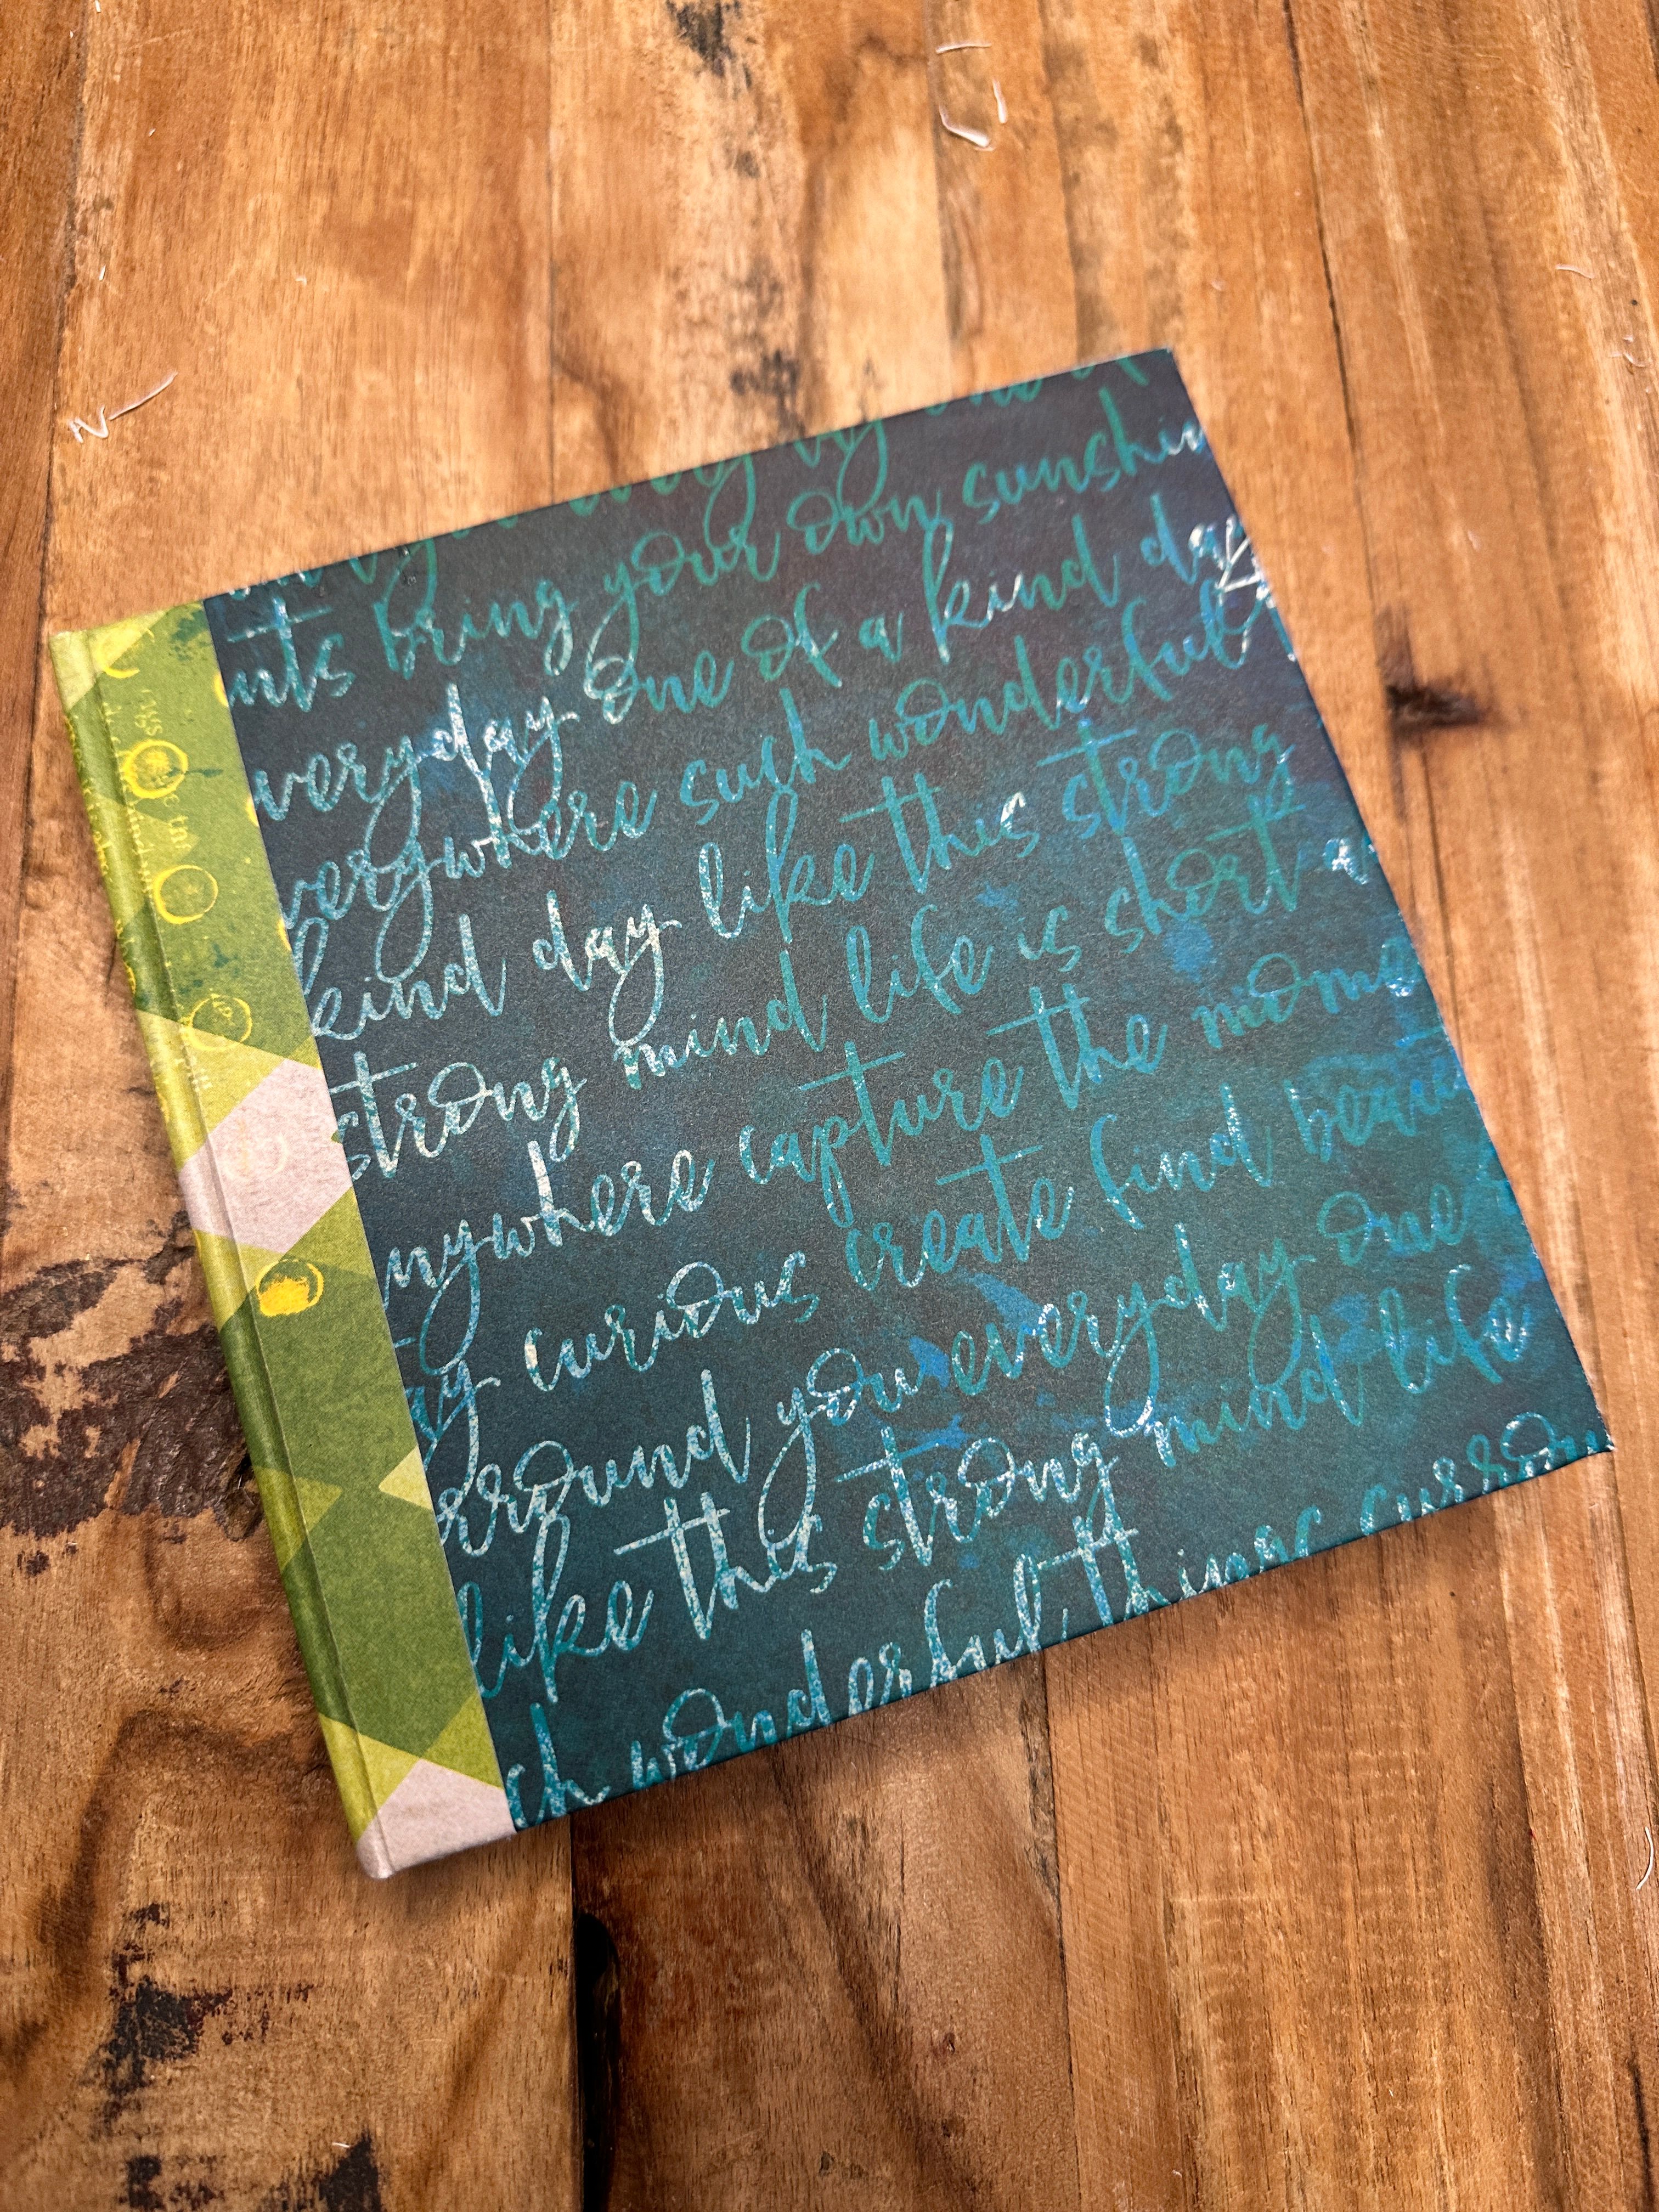 nts bring your own sunshin
veryday one of a kind day
verywhere such wonderful
kind day like this strong
strong mind life is short a
nywhere capture the mome
ay curious create find beaut
rround you everyday one
like this strong mind life
ch wonderful things surrou